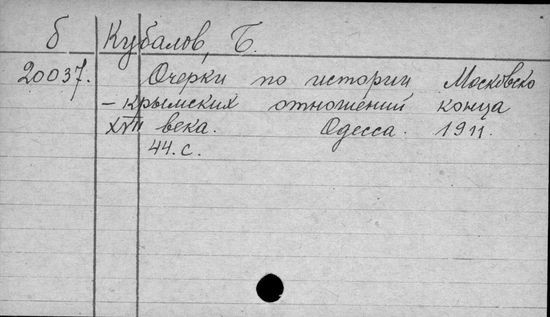 б Кубалов, Б.
20037. Очерки по истории Московско
- крымских отношений конца
XVII века. Одесса. 1911.
44.с.